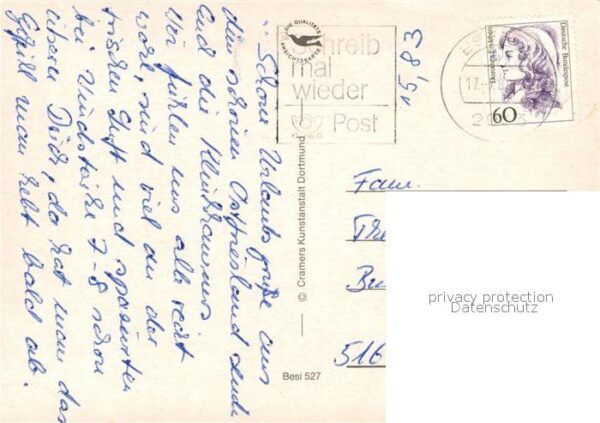 Schöne Urlaubsgrüße aus
dem schönen Ostfriesland sende
und die
Wir fühlen uns alle recht
wohl sind viel an der
frischen Luft und spazierten
bei Windstärke 7-8 schon
überm Deich, da hat man das
Gefühl man hebt bald ab.
DIE QUALITÄTS
ANSICHTSKARTE
Schreib
mal
wieder
Post
15,83
17.
Deutsche Bundespost
Dorothea Erxleben
60
© Cramers Kunstanstalt Dortmund
Besi 527
Fam.
516
privacy protection
Datenschutz